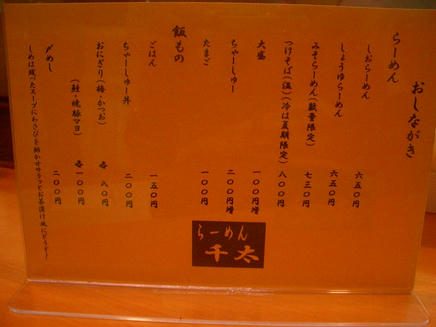 おしながき
らーめん
しおらーめん 六五〇円
しょうゆらーめん 六五〇円
みそらーめん(数量限定) 七三〇円
つけそば(温)(冷は夏期限定) 八〇〇円
大盛 一〇〇円増
ちゃーしゅー 二〇〇円増
たまご 一〇〇円
飯もの
ごはん 一五〇円
ちゃーしゅー丼 二〇〇円
おにぎり(梅・かつお) 各 八〇円
(鮭・焼豚マヨ) 各 一〇〇円
〆めし 二〇〇円
しめは残ったスープにわさびを溶かせサラッとお茶漬け風にどうぞ!
らーめん
千太